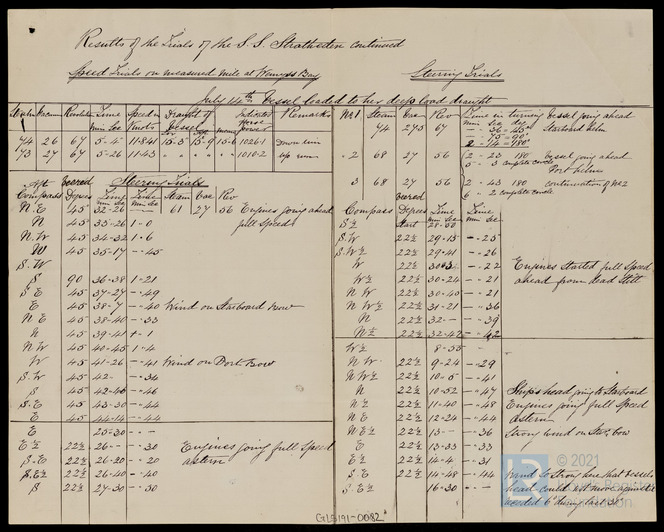 Results of the Trials of the S.S. Stratheden continued
Speed Trials on measured mile at Wemyss Bay
Steering Trials
July 14th Vessel loaded to her deep load draught
Steam Vacum Revolutn Time Speed in Draught of Indicated Remarks
min Sec Knots Vessel Horse
For Aft mean power
74 26 67 5-4 11·841 15·3 15·9 15·6 1026·1 Down run
73 27 67 5-26 11·43 " " " 1010·2 up run
Steering Trials
Compass Degrees Time Time Steam Vac Rev
min Sec
N E 45 32-26 — 61 27 56 Engines going ahead
N 45 33-26 1-0 full speed
N.W 45 34-32 1-6
W 45 35-17 - -45
S.W
S 90 36-38 1-21
S E 45 37-27 - -49
E 45 38-7 - -40 Wind on Starboard bow
N E 45 38-40 - -33
N 45 39-41 1-1
N W 45 40-45 1-4
W 45 41-26 - -41 Wind on Port Bow
S.W 45 42- - -34
S 45 42-46 - -46
S.E 45 43-30 - -44
E 45 44-14 - -44
E 25-30 - -
E ½ 22½ 26- - -30 Engines going full speed
S.E 22½ 26-20 - -20 astern
S.E½ 22½ 26-40 - -40
S 22½ 27-30 - -30
No 1. Steam Vac Rev Time in turning Vessel going ahead
min Sec
74 273 67 - 36 - 45° Starboard helm
- 75 = 90°
2 - 14 = 180°
- 2 68 27 56 2 - 23 180 Vessel going ahead
5 - 3 complete circle Port helm
3 68 27 56 2 - 43 180 continuation of No 2
6 - 2 complete circle
Compass Degrees Time Time
min Sec min Sec
Start 28-50
S.W 22½ 29-15 - -25
S.W½ 22½ 29-41 - -26
W 22½ - -22 Engines Started full Speed
W½ 22½ 30-24 - -21 ahead from dead Still
N W 22½ 30-40 - -21
N W½ 22½ 31-21 - -36
N 22½ 32- - -39
N½ 22½ 32-42 - -42
W½ 8-50 - -
N W. 22½ 9-24 - -29
N W½ 22½ 10-5 - -41
N 22½ 10-52 - -47 Ships head going to Starboard
N ½ 22½ 11-40 - -48 Engines going full Speed
N E 22½ 12-24 - -44 astern
N E½ 22½ 13- - -36 Strong wind on Star. bow
E 22½ 13-33 - -33
E½ 22½ 14-4 - -31
S E 22½ 14-48 - -44 wind so Strong here that vessels
S.E½ 16-30 - - head could not move against it
© 2021
GLB191-0082